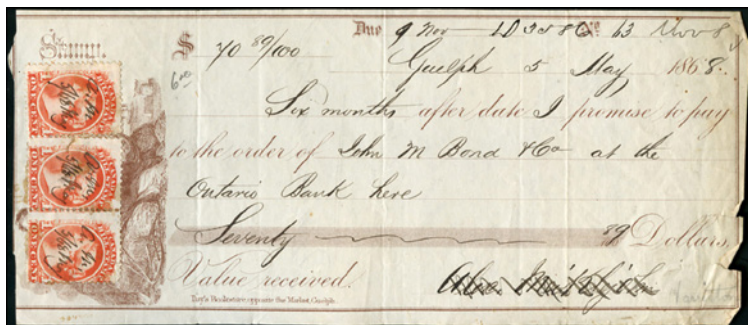 Due 9 Nov
No 63 Nov 8
$ 70 89/100
Guelph 5 May 1868.
600
Six months after date I promise to pay
to the order of John M Bond & Co at the
Ontario Bank here
Seventy 89 Dollars,
Value received.
Day's Bookstore opposite the Market, Guelph.
ONE CENT
ONE CENT
ONE CENT